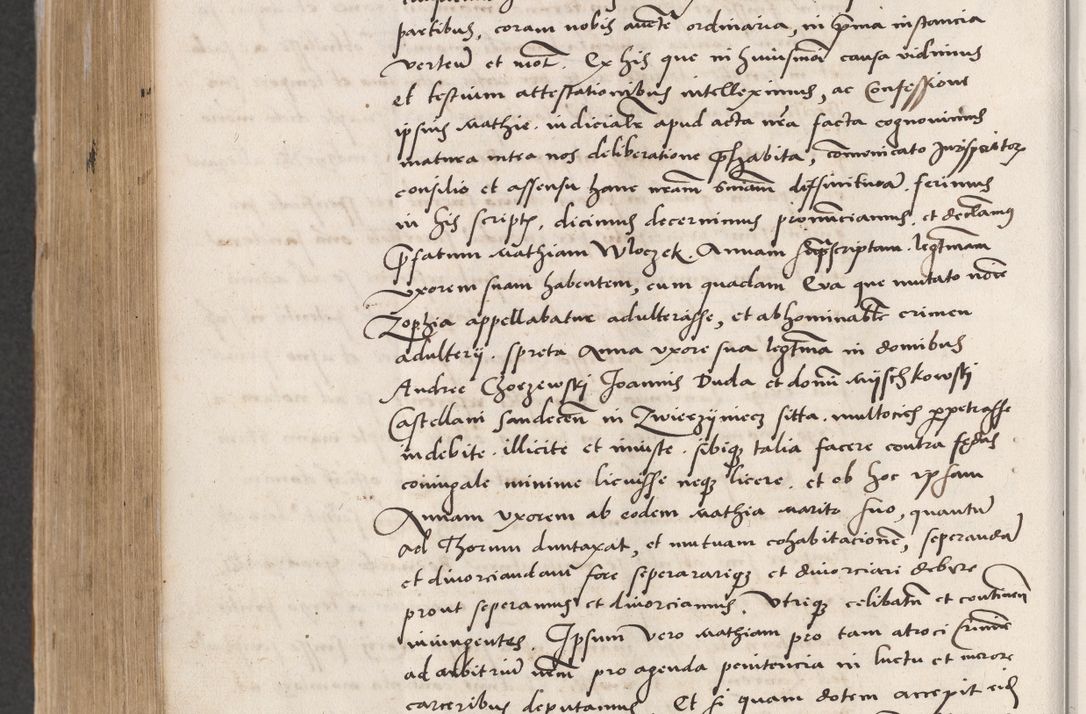 partibus, coram nobis aucte ordinaria, in prima instancia
verteñ et mot. Ex his que in huiusmoi causa vidimus
et testium attestationibus intelleximus, ac Confessione
ipsius Mathie iudicialr apud acta nra facta cognovimus
matura intra nos deliberatione prehabita, comunicato Jurisperitorz
consilio et assensu hanc nram sniam diffinitivam ferimus
in his scriptis, dicimus decernimus pronunciamus, et declaramus
prefatum Mathiam Wloczek Annam suprascriptam legtimam
vxorem suam habentem, cum quadam Eva que mutato noie
Zophia appellabatur adulterasse, et abhominabile crimen
adulterij spreta Anna vxore sua legtima in domibus
Andree Choczewskj Joannis Duda et domi Mijschkowskj
Castellani Sandeceñ in Zwierzijniecz sitta multocies perpetrasse
indebite illicite et iniuste sibique talia facere contra fedus
coniugale minime licuisse neque licere et ob hoc ipsam
Annam vxorem ab eodem Mathia marito suo, quantum
ad Thorum duntaxat, et mutuam cohabitacionem, seperandam
et divorciandam fore seperararique et divorciari debere
prout seperamus et divorciamus, Vtrique celibatum et continen
iniungentes. Ipsum vero Mathiam pro tam atroci Crimine
ad arbitrium nrum pro agenda penitencia in luctu et merore
carceribus deputamus. Et si quam dotem accepit eid